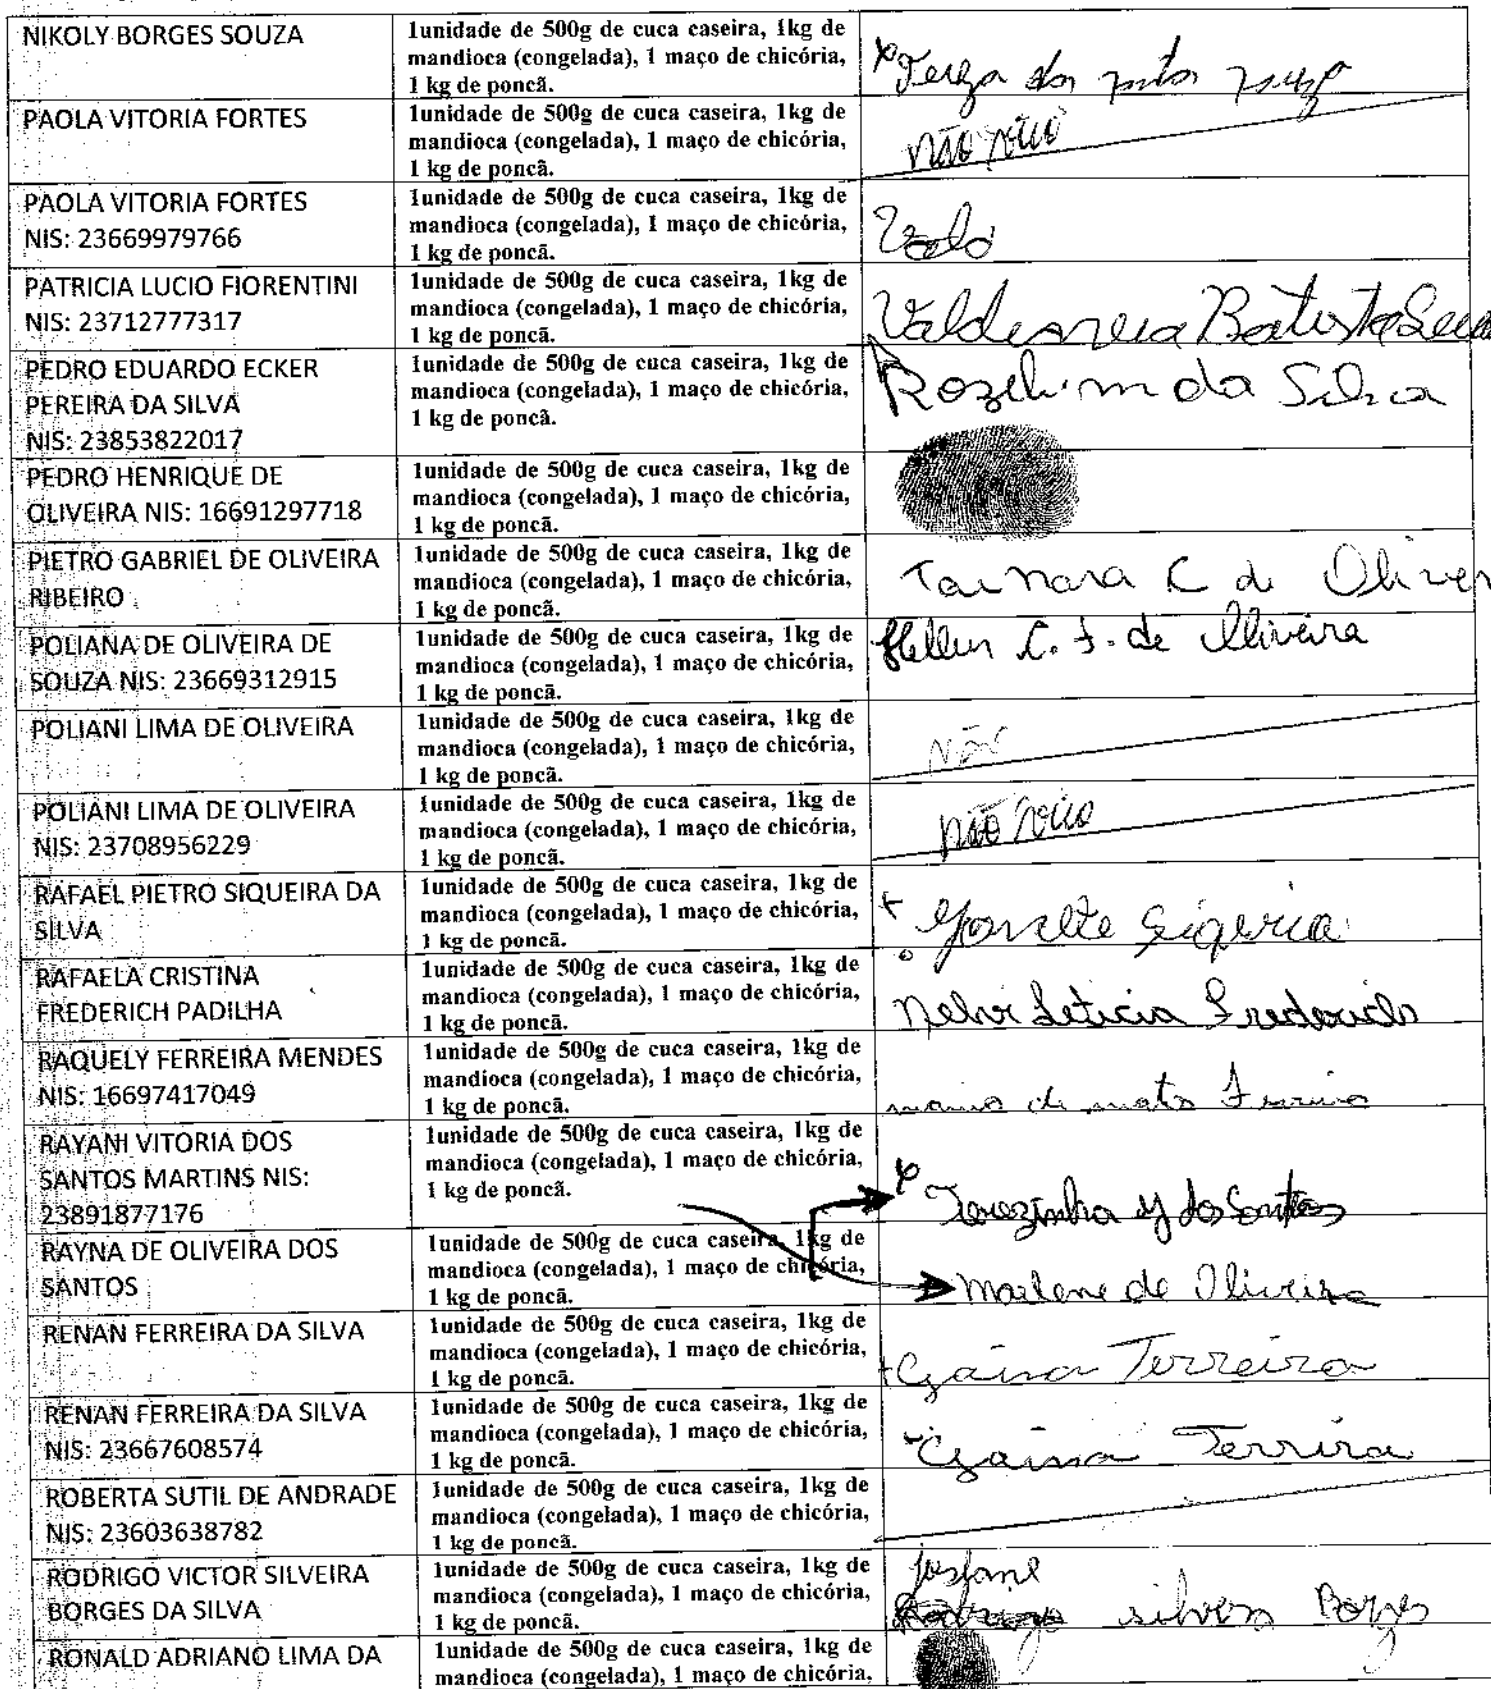 NIKOLY BORGES SOUZA
1unidade de 500g de cuca caseira, 1kg de
mandioca (congelada), 1 maço de chicória,
1 kg de poncã.
PAOLA VITORIA FORTES
1unidade de 500g de cuca caseira, 1kg de
mandioca (congelada), 1 maço de chicória,
1 kg de poncã.
não veio
PAOLA VITORIA FORTES
NIS: 23669979766
1unidade de 500g de cuca caseira, 1kg de
mandioca (congelada), 1 maço de chicória,
1 kg de poncã.
PATRICIA LUCIO FIORENTINI
NIS: 23712777317
1unidade de 500g de cuca caseira, 1kg de
mandioca (congelada), 1 maço de chicória,
1 kg de poncã.
Batista
PEDRO EDUARDO ECKER
PEREIRA DA SILVA
NIS: 23853822017
1unidade de 500g de cuca caseira, 1kg de
mandioca (congelada), 1 maço de chicória,
1 kg de poncã.
da Silva
PEDRO HENRIQUE DE
OLIVEIRA NIS: 16691297718
1unidade de 500g de cuca caseira, 1kg de
mandioca (congelada), 1 maço de chicória,
1 kg de poncã.
PIETRO GABRIEL DE OLIVEIRA
RIBEIRO
1unidade de 500g de cuca caseira, 1kg de
mandioca (congelada), 1 maço de chicória,
1 kg de poncã.
Tainara C de Oliver
POLIANA DE OLIVEIRA DE
SOUZA NIS: 23669312915
1unidade de 500g de cuca caseira, 1kg de
mandioca (congelada), 1 maço de chicória,
1 kg de poncã.
Hellen C. F. de Oliveira
POLIANI LIMA DE OLIVEIRA
1unidade de 500g de cuca caseira, 1kg de
mandioca (congelada), 1 maço de chicória,
1 kg de poncã.
Não
POLIANI LIMA DE OLIVEIRA
NIS: 23708956229
1unidade de 500g de cuca caseira, 1kg de
mandioca (congelada), 1 maço de chicória,
1 kg de poncã.
não veio
RAFAEL PIETRO SIQUEIRA DA
SILVA
1unidade de 500g de cuca caseira, 1kg de
mandioca (congelada), 1 maço de chicória,
1 kg de poncã.
RAFAELA CRISTINA
FREDERICH PADILHA
1unidade de 500g de cuca caseira, 1kg de
mandioca (congelada), 1 maço de chicória,
1 kg de poncã.
Leticia Frederich
RAQUELY FERREIRA MENDES
NIS: 16697417049
1unidade de 500g de cuca caseira, 1kg de
mandioca (congelada), 1 maço de chicória,
1 kg de poncã.
RAYANI VITORIA DOS
SANTOS MARTINS NIS:
23891877176
1unidade de 500g de cuca caseira, 1kg de
mandioca (congelada), 1 maço de chicória,
1 kg de poncã.
Terezinha dos Santos
RAYNA DE OLIVEIRA DOS
SANTOS
1unidade de 500g de cuca caseira, 1kg de
mandioca (congelada), 1 maço de chicória,
1 kg de poncã.
Marlene de Oliveira
RENAN FERREIRA DA SILVA
1unidade de 500g de cuca caseira, 1kg de
mandioca (congelada), 1 maço de chicória,
1 kg de poncã.
Ferreira
RENAN FERREIRA DA SILVA
NIS: 23667608574
1unidade de 500g de cuca caseira, 1kg de
mandioca (congelada), 1 maço de chicória,
1 kg de poncã.
ROBERTA SUTIL DE ANDRADE
NIS: 23603638782
1unidade de 500g de cuca caseira, 1kg de
mandioca (congelada), 1 maço de chicória,
1 kg de poncã.
RODRIGO VICTOR SILVEIRA
BORGES DA SILVA
1unidade de 500g de cuca caseira, 1kg de
mandioca (congelada), 1 maço de chicória,
1 kg de poncã.
Borges
RONALD ADRIANO LIMA DA
1unidade de 500g de cuca caseira, 1kg de
mandioca (congelada), 1 maço de chicória,